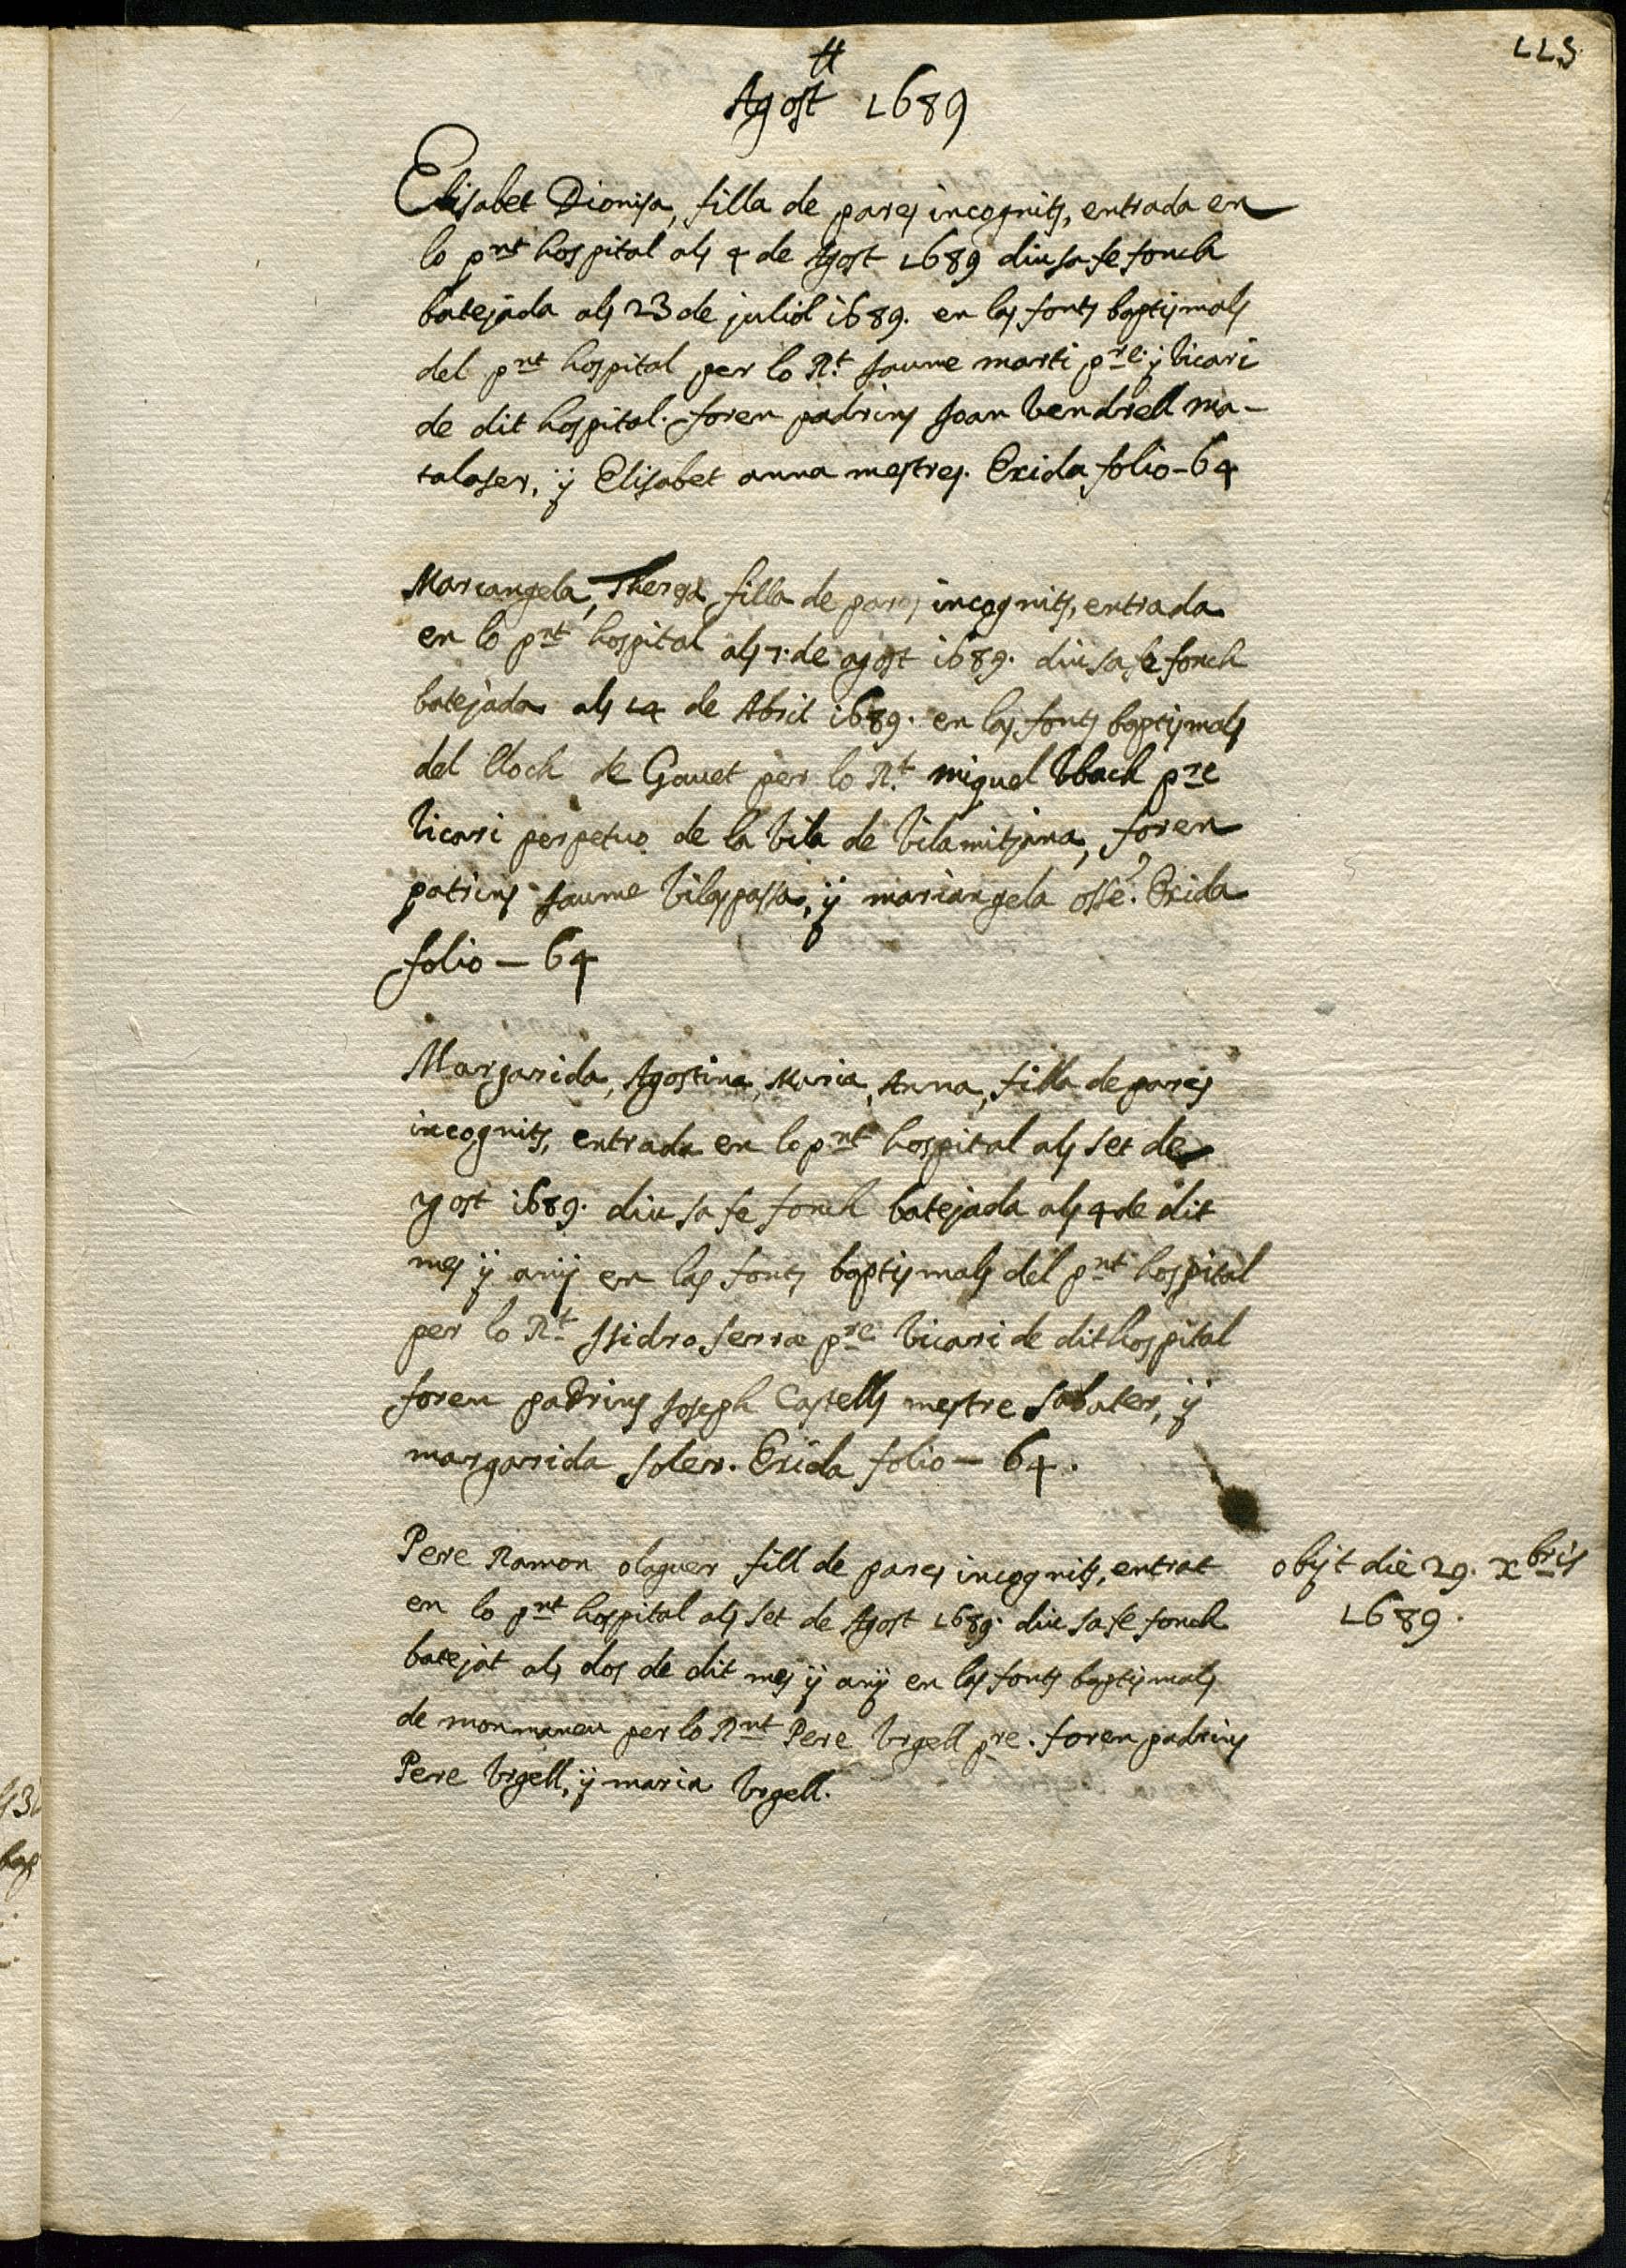 115
Agost 1689
Elisabet Dionisa, filla de pares incognits, entrada en
lo pnt hospital als 4 de Agost 1689 diu sa fe fonch
batejada als 23 de juliol 1689. en las fonts baptismals
del pnt hospital per lo Rt. Jaume marti pre. y Vicari
de dit hospital. foren padrins Joan Vendrell ma-
talaser, ÿ Elisabet anna mestres. Exida folio - 64
Mariangela, Theresa, filla de pares incognits, entrada
en lo pnt hospital als 7. de agost 1689. diu sa fe fonch
batejada als 14 de Abril 1689. en las fonts baptismals
del lloch de Gavet per lo Rt. miquel Vbach pre
Vicari perpetuo de la Vila de Vilamitjana, foren
patrins Jaume Vilaspassa, ÿ mariangela osse. Exida
folio - 64
Margarida, Agostina, Maria, Anna, filla de pares
incognits, entrada en lo pnt hospital als set de
agost 1689. diu sa fe fonch batejada als 4 de dit
mes ÿ anÿ en las fonts baptismals del pnt hospital
per lo Rt Isidro Serra pre Vicari de dit hospital
foren padrins Joseph Castells mestre Sabater, ÿ
margarida Soler. Exida folio - 64.
Pere Ramon olaguer fill de pares incognits, entrat
en lo pnt hospital als set de Agost 1689. diu sa fe fonch
batejat als dos de dit mes ÿ anÿ en las fonts baptismals
de monmaneu per lo Rnt Pere Vrgell pre. foren padrins
Pere Vrgell, ÿ maria Vrgell.
obijt die 29. xbris
1689.